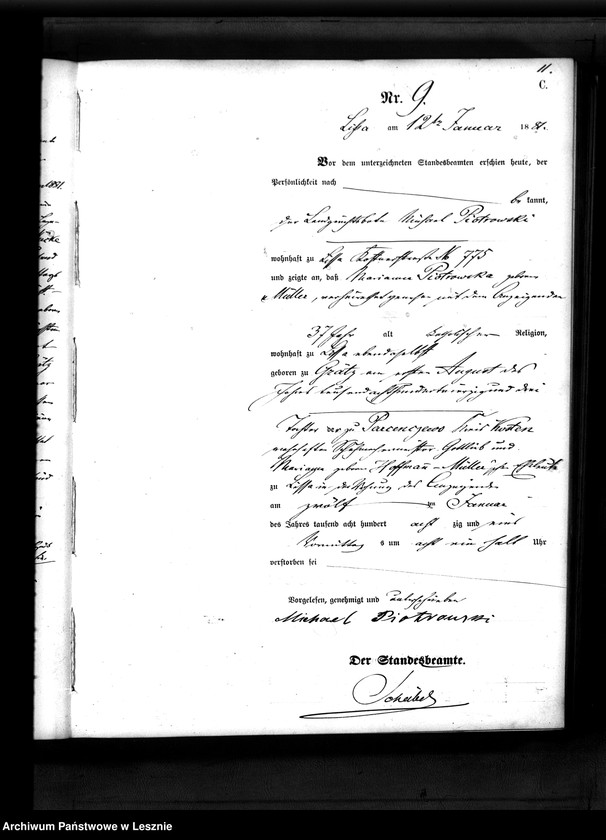 11.
C.
Nr. 9.
Lissa am 12ten Januar 1881.
Vor dem unterzeichneten Standesbeamten erschien heute, der
Persönlichkeit nach
be kannt,
der Landgerichtsbote Michael Piotrowski
wohnhaft zu Lissa Kostnerstraße No 775
und zeigte an, daß Marianna Piotrowska geborene
Müller, verheirathet gewesen mit dem Anzeigenden
37 Jahr alt katholischer Religion,
wohnhaft zu Lissa ebendaselbst
geboren zu Grätz am ersten August des
Jahres tausendachthundertvierzigunddrei
Tochter der zu Parzenczewo Kreis Kosten
verstorbenen Gottlieb und
Marianna geborene Hoffmann Müller'schen Eheleute
zu Lissa in der Wohnung des Anzeigenden
am zwölften Januar
des Jahres tausend acht hundert acht zig und eins
Vormittags um acht ein halb Uhr
verstorben sei
Vorgelesen, genehmigt und unterschrieben
Michael Piotrowski
Der Standesbeamte.
Scheibel
1881.
Archiwum Państwowe w Lesznie